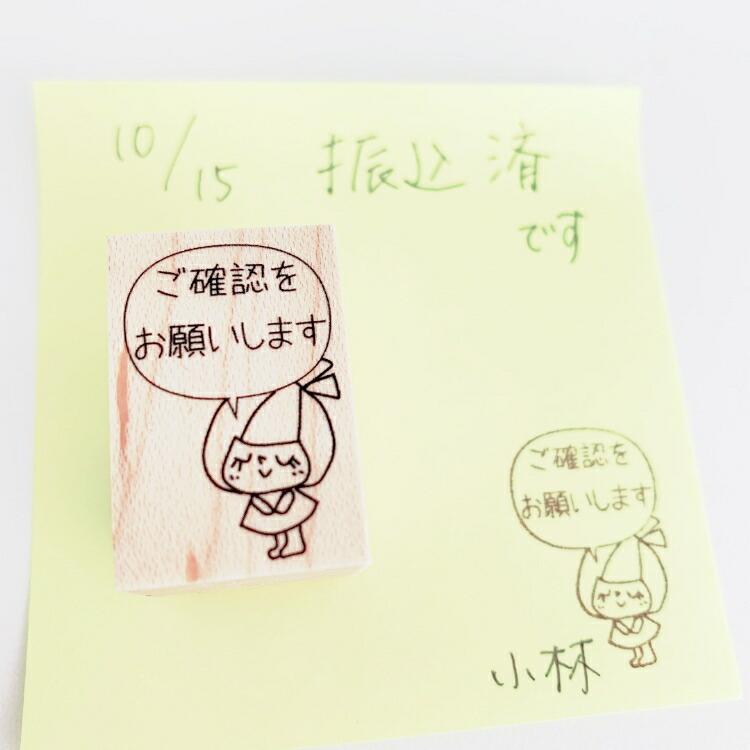 10/15 振込済
です
ご確認を
お願いします
ご確認を
お願いします
小林